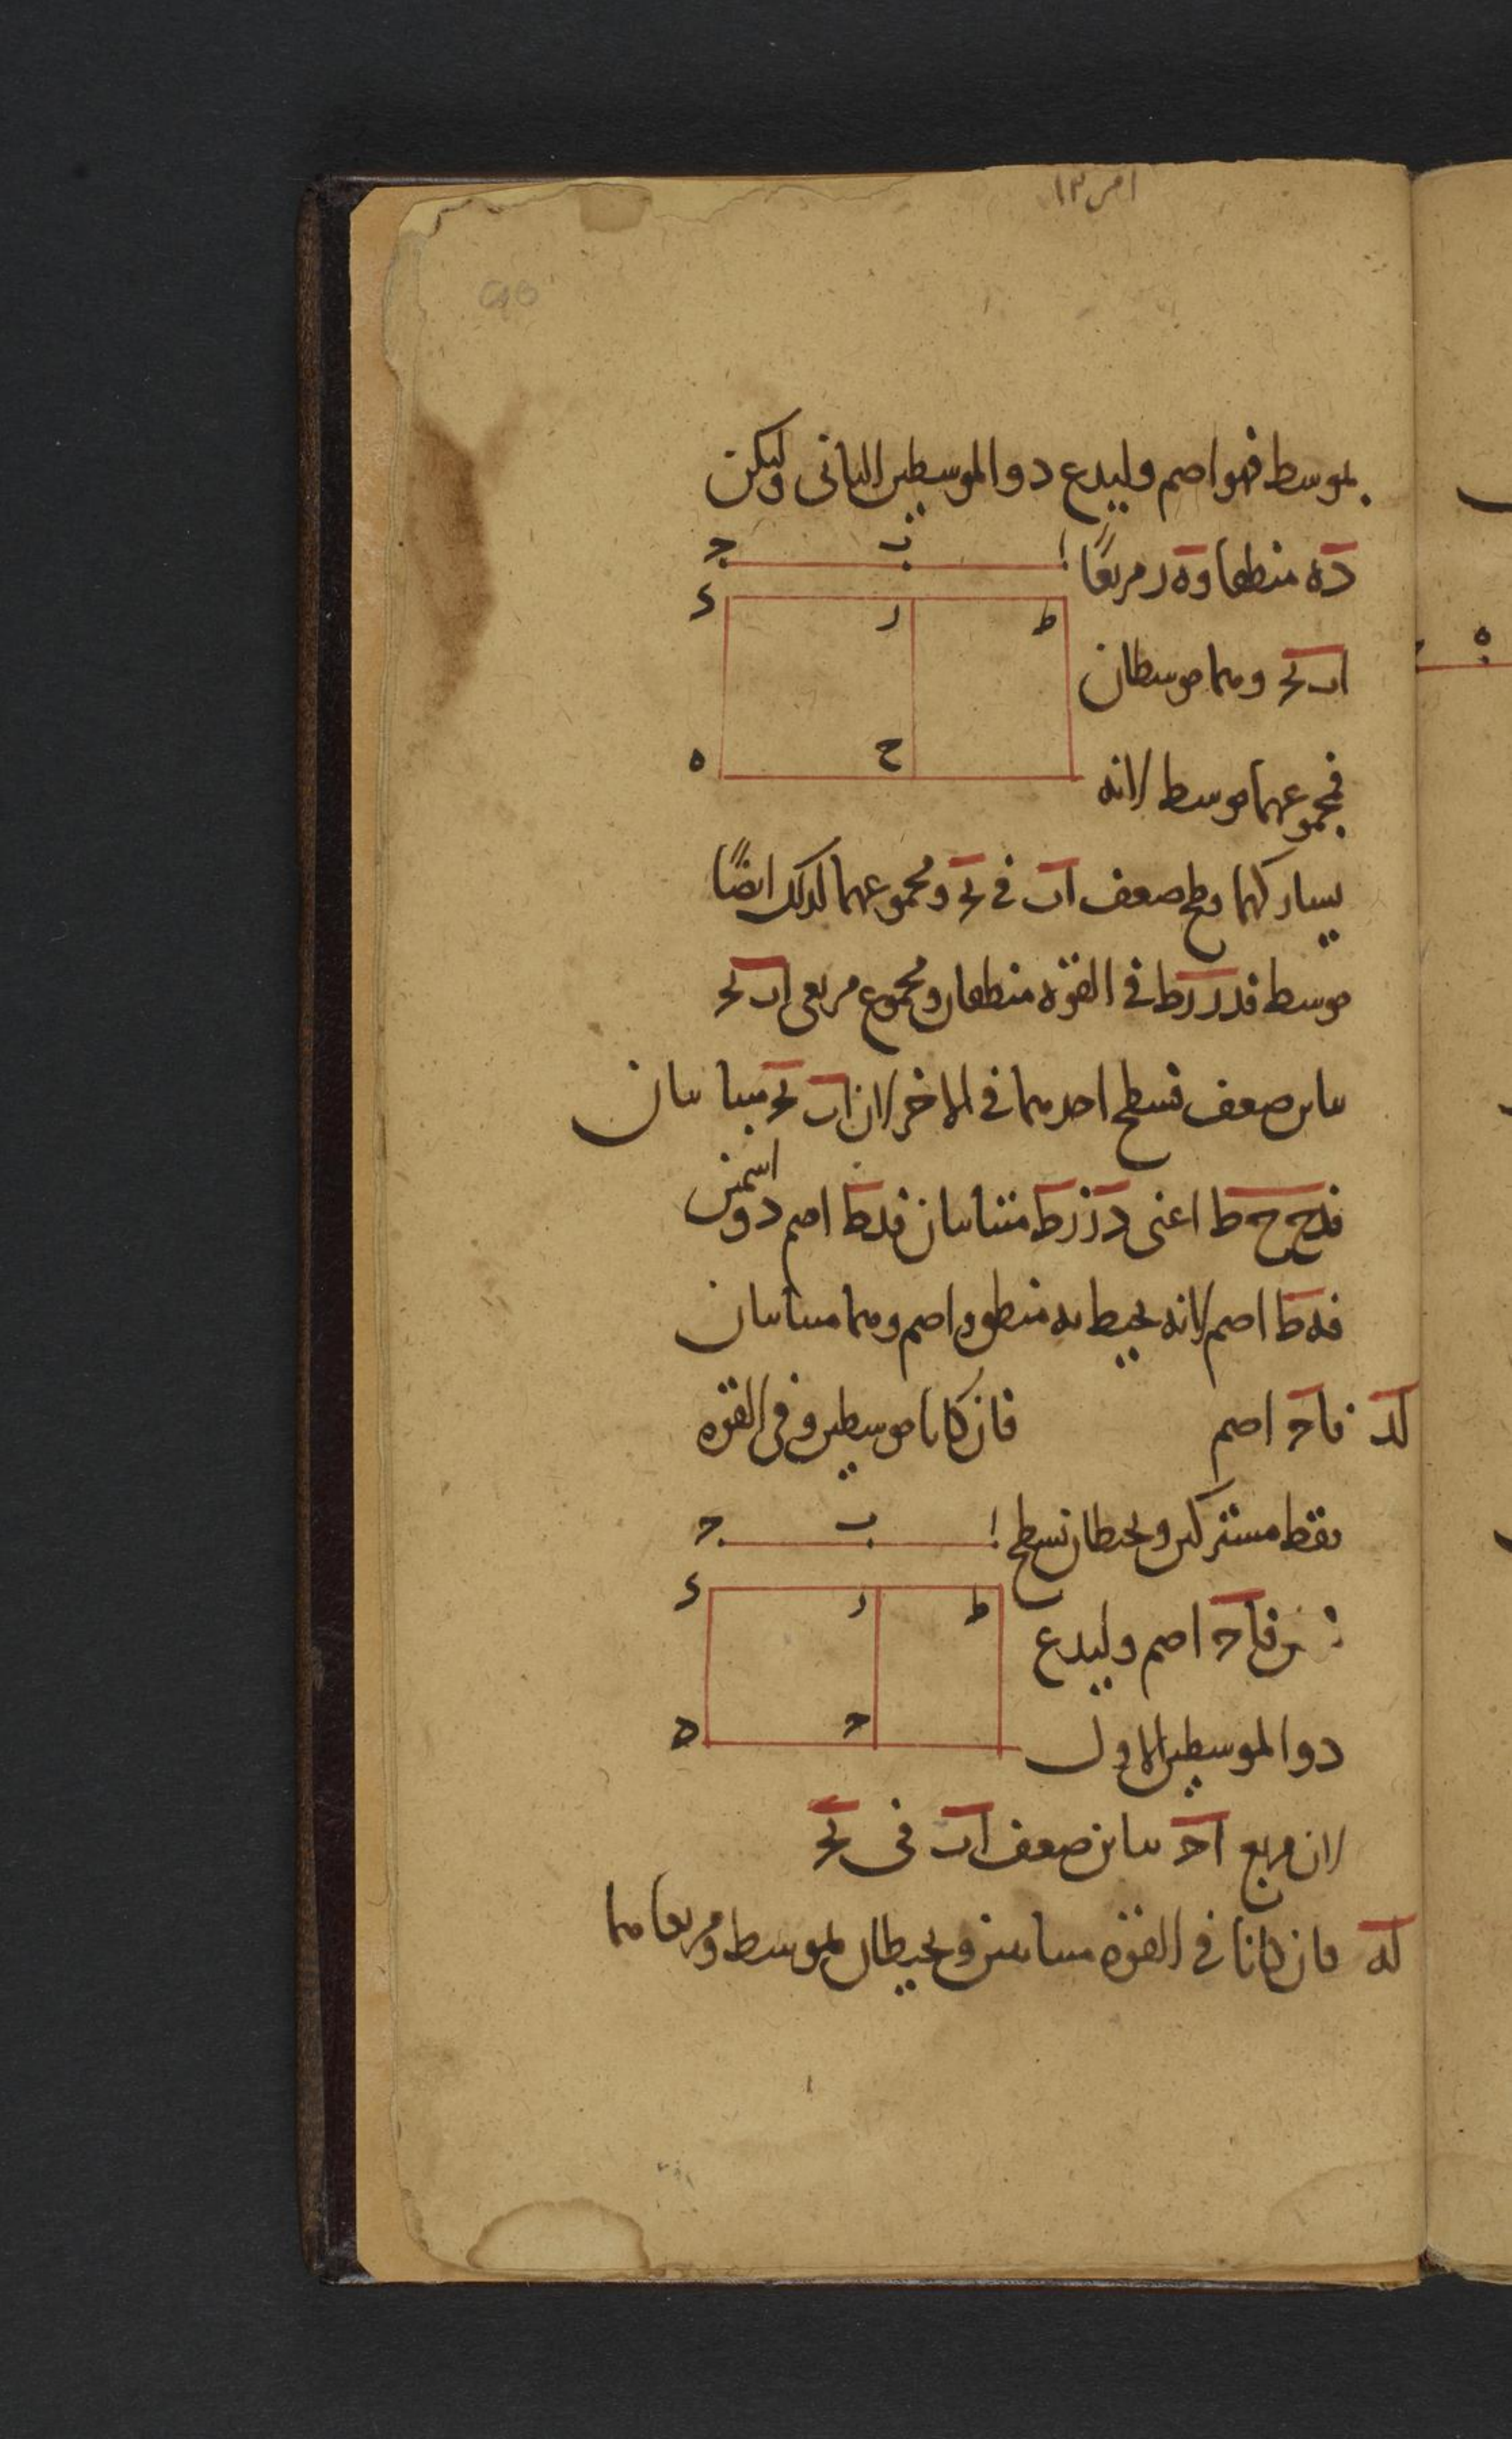 بموسط فهو اصم وليدع ذو الموسطين الثانى وليكن
ا ب ج
ده منطقا وه ر مربعا
د ر ط
اب بج وهما موسطان
ه ح
فمجموعهما موسط لانه
يشاركهما وطح ضعف اب فى بج ومجموعهما كذلك ايضًا
موسط فدر رط فى القوة منطقان ومجموع مربعى اب بج
يباين ضعف تسطيح احدهما فى الاخر لان اب بج متباينان
اسمين
فدح ح ط اعنى در رط متباينان فدط اصم ذو
فه ط اصم لانه يحيط به منطق واصم وهما متباينان
لد فاج اصم فان كانا موسطين وفى القوة
فقط مشتركين ويحيطان بسطح
ا ب ج
د ر ط
فاج اصم وليدع
ه ح
ذو الموسطين الاول
لان مربع اج يباين ضعف اب فى بج
له فان كانا فى القوة متباينين ويحيطان بموسط ومربعاهما